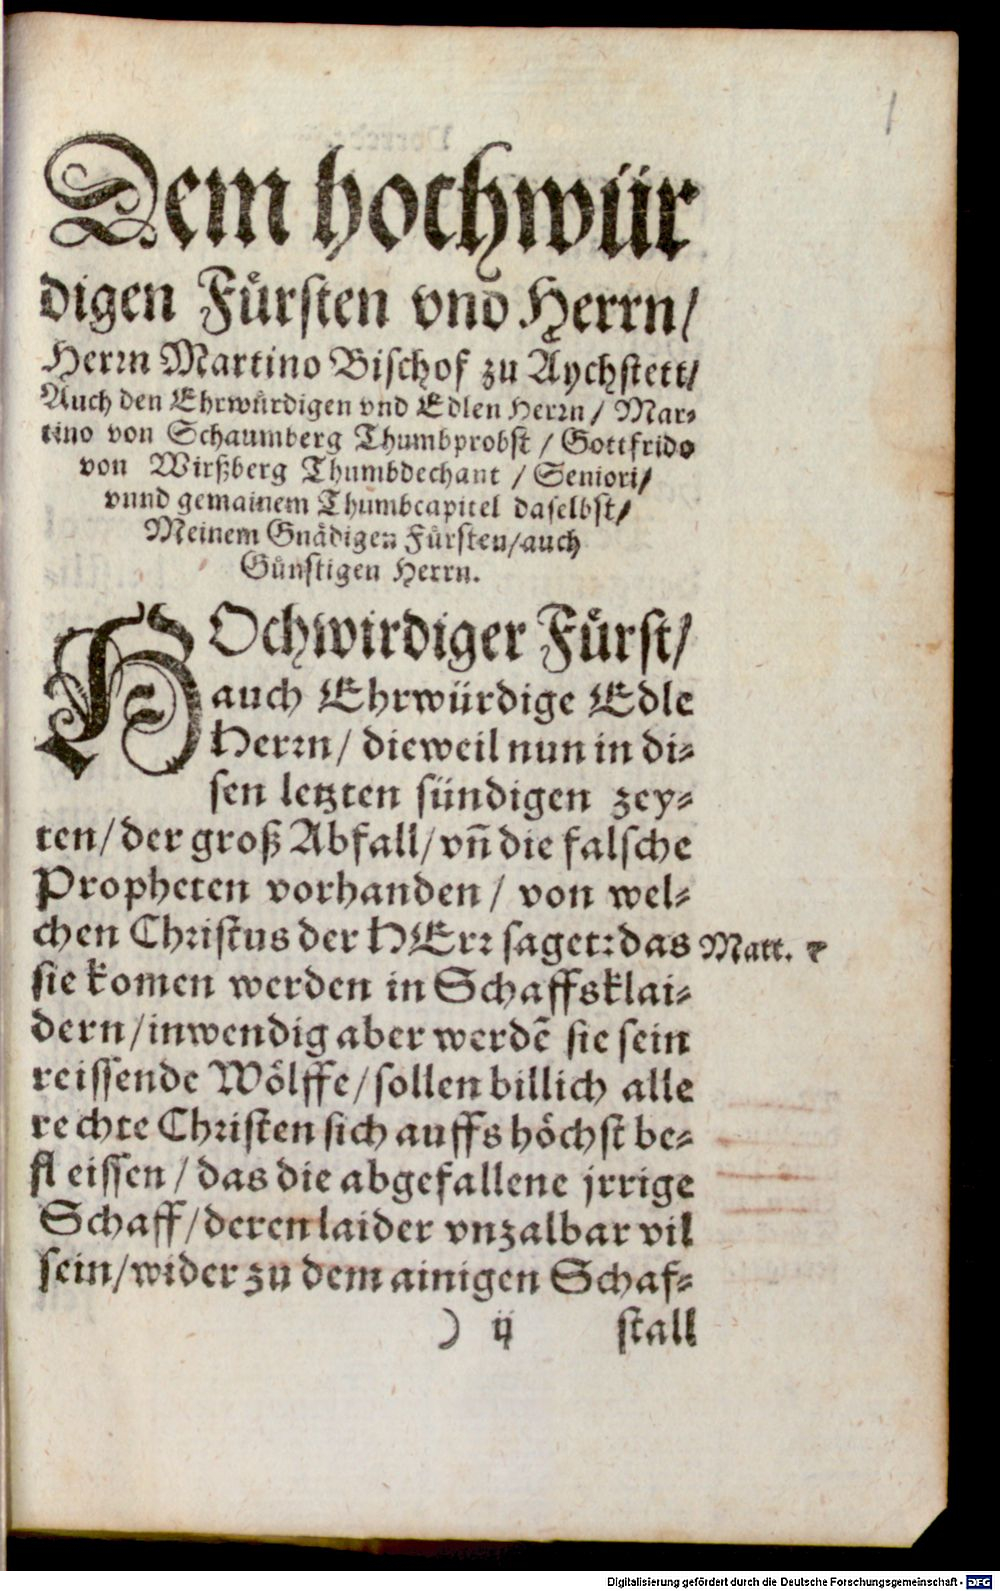 1
Dem hochwür
digen Fürsten vnd Herrn/
Herrn Martino Bischof zu Aychstett/
Auch den Ehrwürdigen vnd Edlen Herrn/ Mar⸗
tino von Schaumberg Thumbprobst / Gottfrido
von Wirßberg Thumbdechant / Seniori/
vnnd gemainem Thumbcapitel daselbst/
Meinem Gnädigen Fürsten/auch
Günstigen Herrn.
HOchwirdiger Fürst/
auch Ehrwürdige Edle
Herrn/ dieweil nun in di⸗
sen letzten sündigen zey⸗
ten/der groß Abfall/vñ die falsche
Propheten vorhanden/ von wel⸗
chen Christus der HErr saget:das
Matt.
sie komen werden in Schaffsklai⸗
dern/inwendig aber werdē sie sein
reissende Wölffe/sollen billich alle
rechte Christen sich auffs höchst be⸗
fleissen/das die abgefallene jrrige
Schaff/deren laider vnzalbar vil
sein/wider zu dem ainigen Schaf⸗
) ij stall
Digitalisierung gefördert durch die Deutsche Forschungsgemeinschaft - DFG